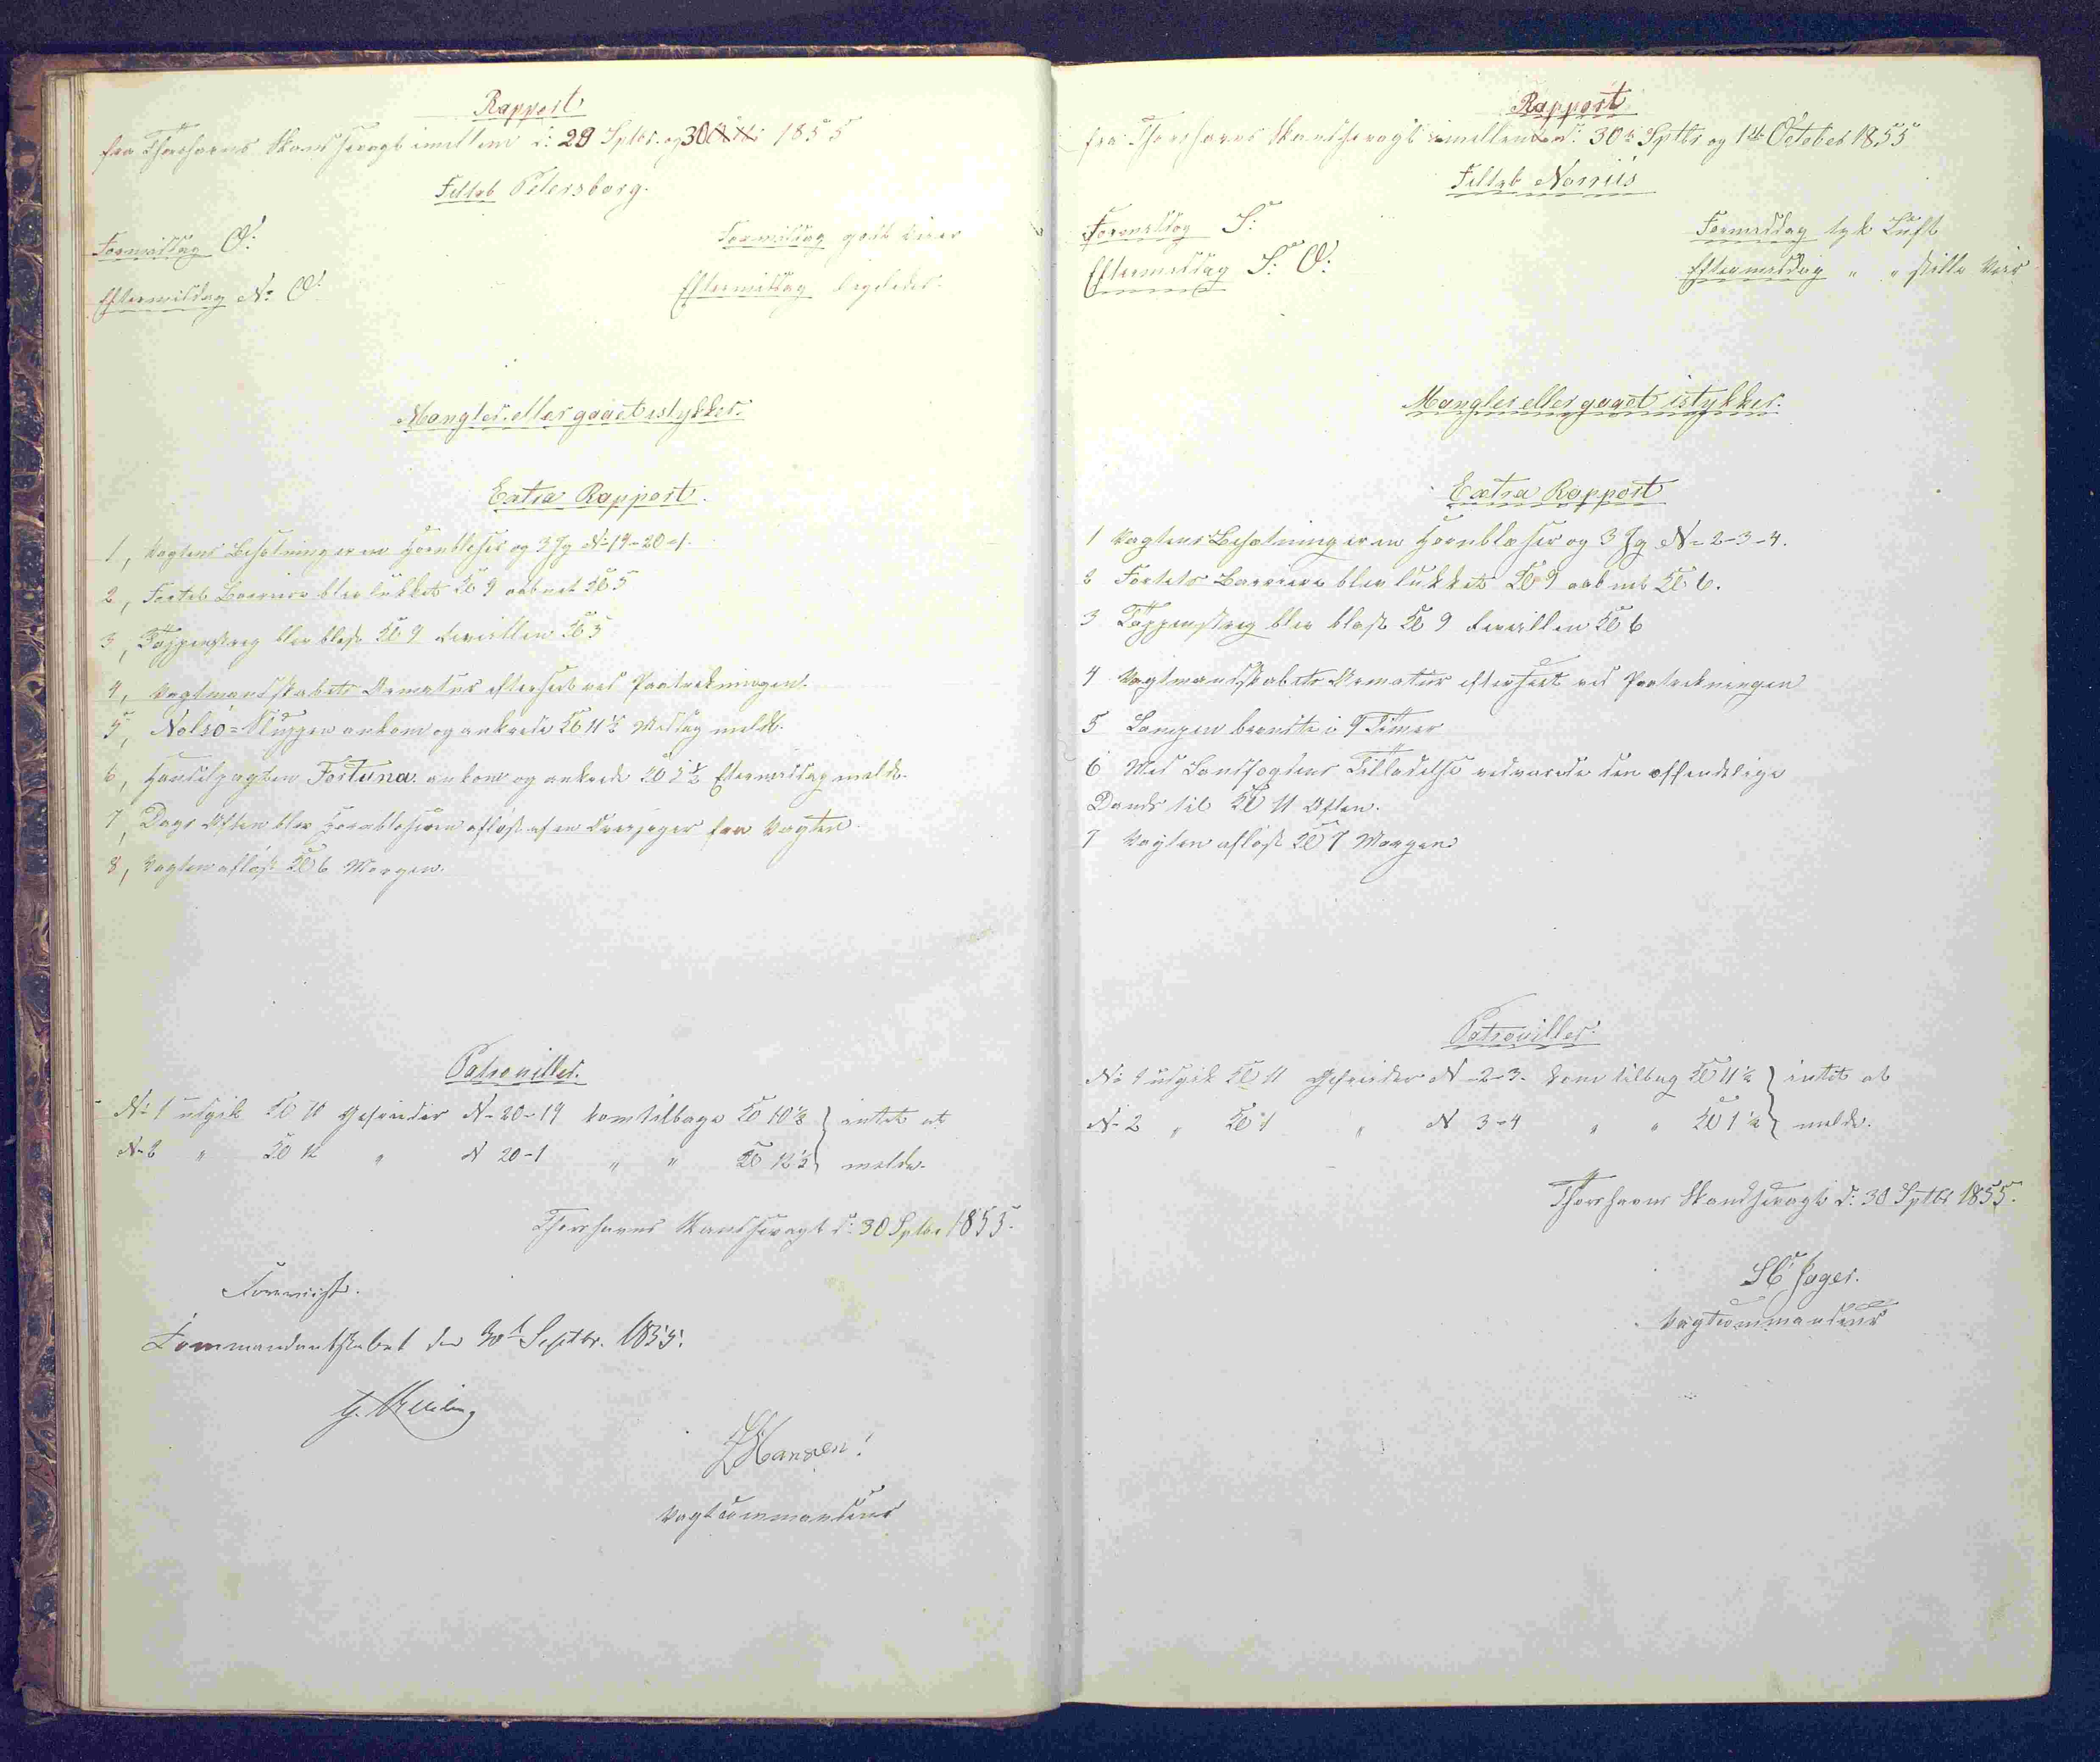 Rapport
fra Thorshavns Skandsevagt imellem d: 29 Sptbr. og 30 1855
Feltrb Petersborg.
Formiddag O:
Formiddag godt Veir
Eftermiddag N: O:
Eftermiddag ligeledes.
Mangler eller gaaet istykker.
Extra Rapport.
1, Vagtens Besætning er en Hornblæser og 3 Jg N: 19-20-1.
2, Fortets Barriere blev lukket Kl 9 aabnet Kl 5
3, Tappenstreg blev blæst Kl 9 Reveillen Kl 5
4, Vagtmandskabets Armatur efterseet ved Paatrækningen.
5, Nolsø-Sluppen ankom og ankrede Kl 11½ Middag meldt.
6, Handelsjagten Fortuna ankom og ankrede Kl 5½ Eftermiddag meldt.
7, Dags Aften blev Hornblæseren afløst af en Tværjæger fra Vagten.
8, Vagten afløst Kl 6 Morgen.
Patrouiller.
N: 1 udgik Kl 10 Gefreider N: 20-19 kom tilbage Kl 10½ } intet at
N: 2 " Kl 12 " N 20-1 " " Kl 12½ } melde.
Thorshavns Skandsevagt d: 30 Sptbr 1855.
Foreviist.
Commandantskabet den 30t Septbr. 1855.
Hansen.
Vagtcommandeur
Rapport
fra Thorshavns Skandsevagt imellem d: 30te Sptbr og 1ste October 1855
Feltrb Norriis
Formiddag S:
Formiddag tyk Luft
Eftermiddag S: O:
Eftermiddag " " stille Veir
Mangler eller gaaet istykker.
Extra Rapport
1 Vagtens Besætning er en Hornblæser og 3 Jg N: 2-3-4.
2 Fortets Barriere blev lukket Kl 9 aabnet Kl 6.
3 Tappenstreg blev blæst Kl 9 Reveillen Kl 6
4 Vagtmandskabets Armatur efterseet ved Paatrækningen
5 Lampen brændte i 9 Timer
6 Med Landfogdens Tilladelse vedvarede den offendtlige
Dands til Kl 11 Aften.
7 Vagten afløst Kl 7 Morgen
Patrouiller.
N: 1 udgik Kl 11 Gefreider N 2-3. kom tilbag Kl 11½ } intet at
N: 2 " Kl 1 " N 3-4 " " Kl 1½ } melde.
Thorshavns Skandsevagt d: 30 Sptbr 1855.
Jager.
Vagtcommandeur